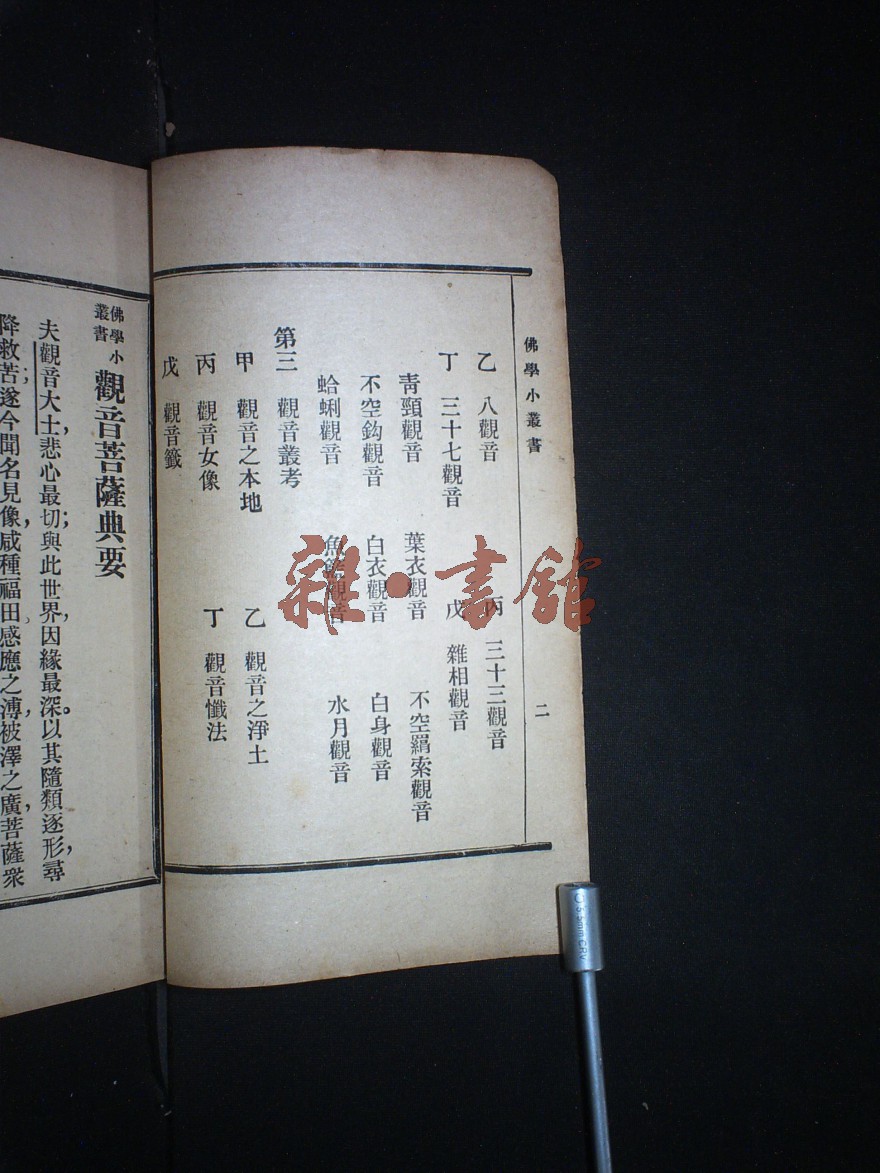 佛學小叢書
二
乙 八觀音 丙 三十三觀音
丁 三十七觀音 戊 雜相觀音
青頸觀音 葉衣觀音 不空羂索觀音
不空鈎觀音 白衣觀音 白身觀音
蛤蜊觀音 魚籃觀音 水月觀音
第三 觀音叢考
甲 觀音之本地 乙 觀音之淨土
丙 觀音女像 丁 觀音懺法
戊 觀音籤
佛學小叢書 觀音菩薩典要
夫觀音大士，悲心最切；與此世界，因緣最深。以其隨類逐形，尋
降救苦；遂今聞名見像，咸種福田。感應之溥，被澤之廣，菩薩衆
雜·書館
5.5mm CRV